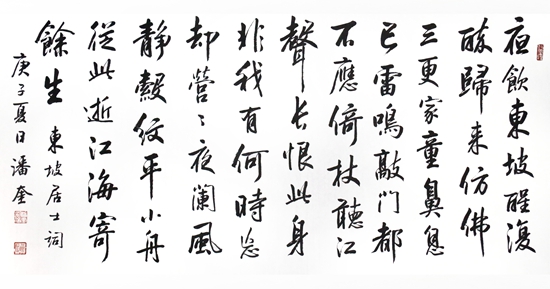 夜飲東坡醒復
醉歸来仿佛
三更家童鼻息
已雷鳴敲門都
不應倚杖聽江
聲长恨此身
非我有何時忘
却營〻夜闌風
靜縠紋平小舟
從此逝江海寄
餘生 東坡居士詞
庚子夏日潘奎